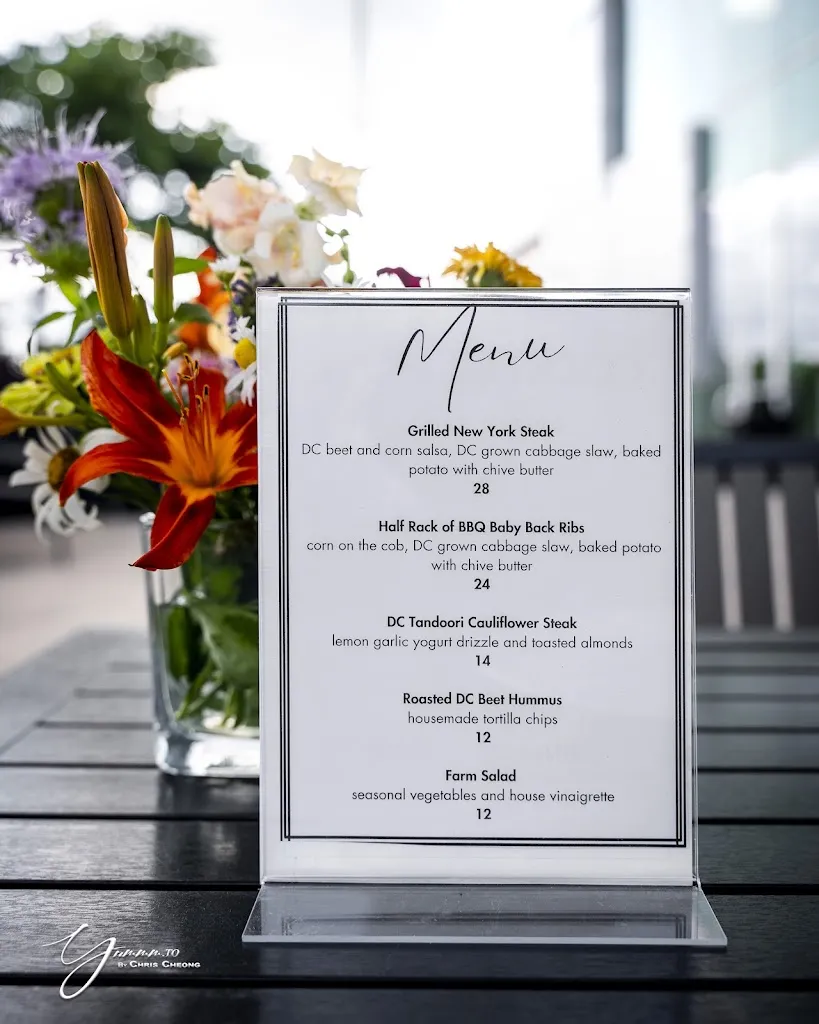 Menu
Grilled New York Steak
DC beet and corn salsa, DC grown cabbage slaw, baked
potato with chive butter
28
Half Rack of BBQ Baby Back Ribs
corn on the cob, DC grown cabbage slaw, baked potato
with chive butter
24
DC Tandoori Cauliflower Steak
lemon garlic yogurt drizzle and toasted almonds
14
Roasted DC Beet Hummus
housemade tortilla chips
12
Farm Salad
seasonal vegetables and house vinaigrette
12
Yummm.TO
By Chris Cheong